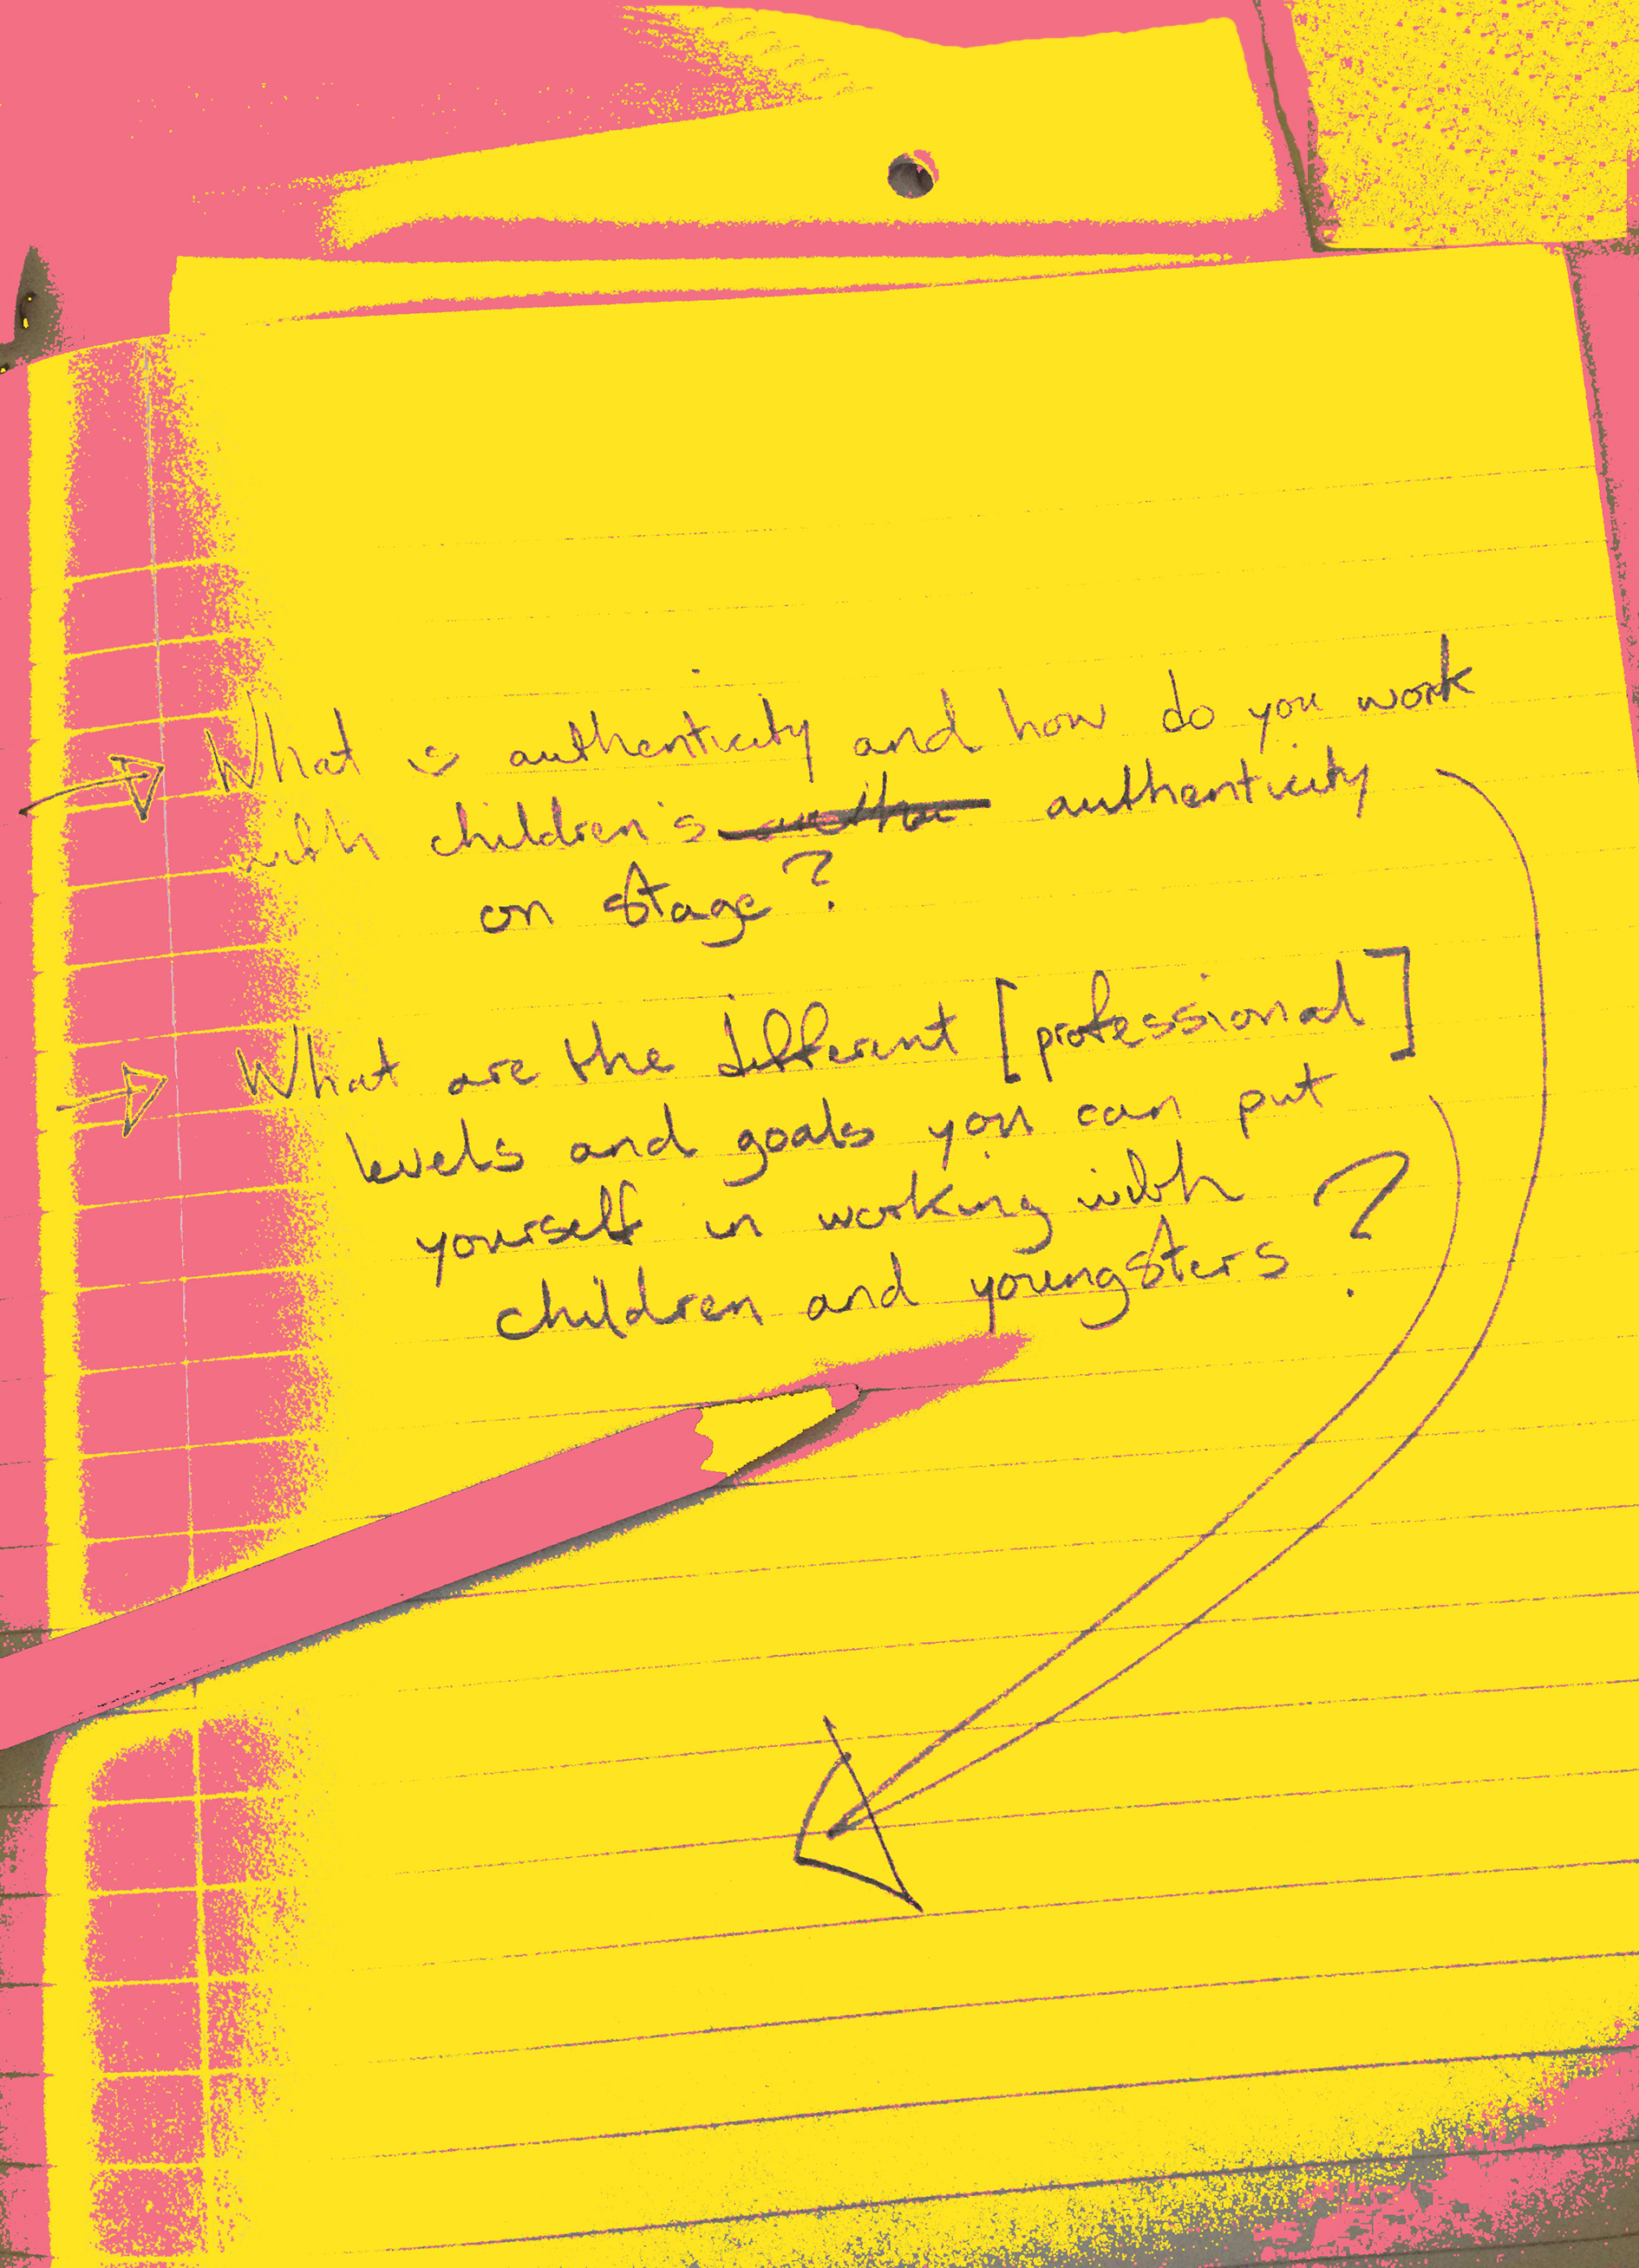 What is authenticity and how do you work
with children's authenticity
on stage?
What are the different [professional]
levels and goals you can put
yourself in working with
children and youngsters?